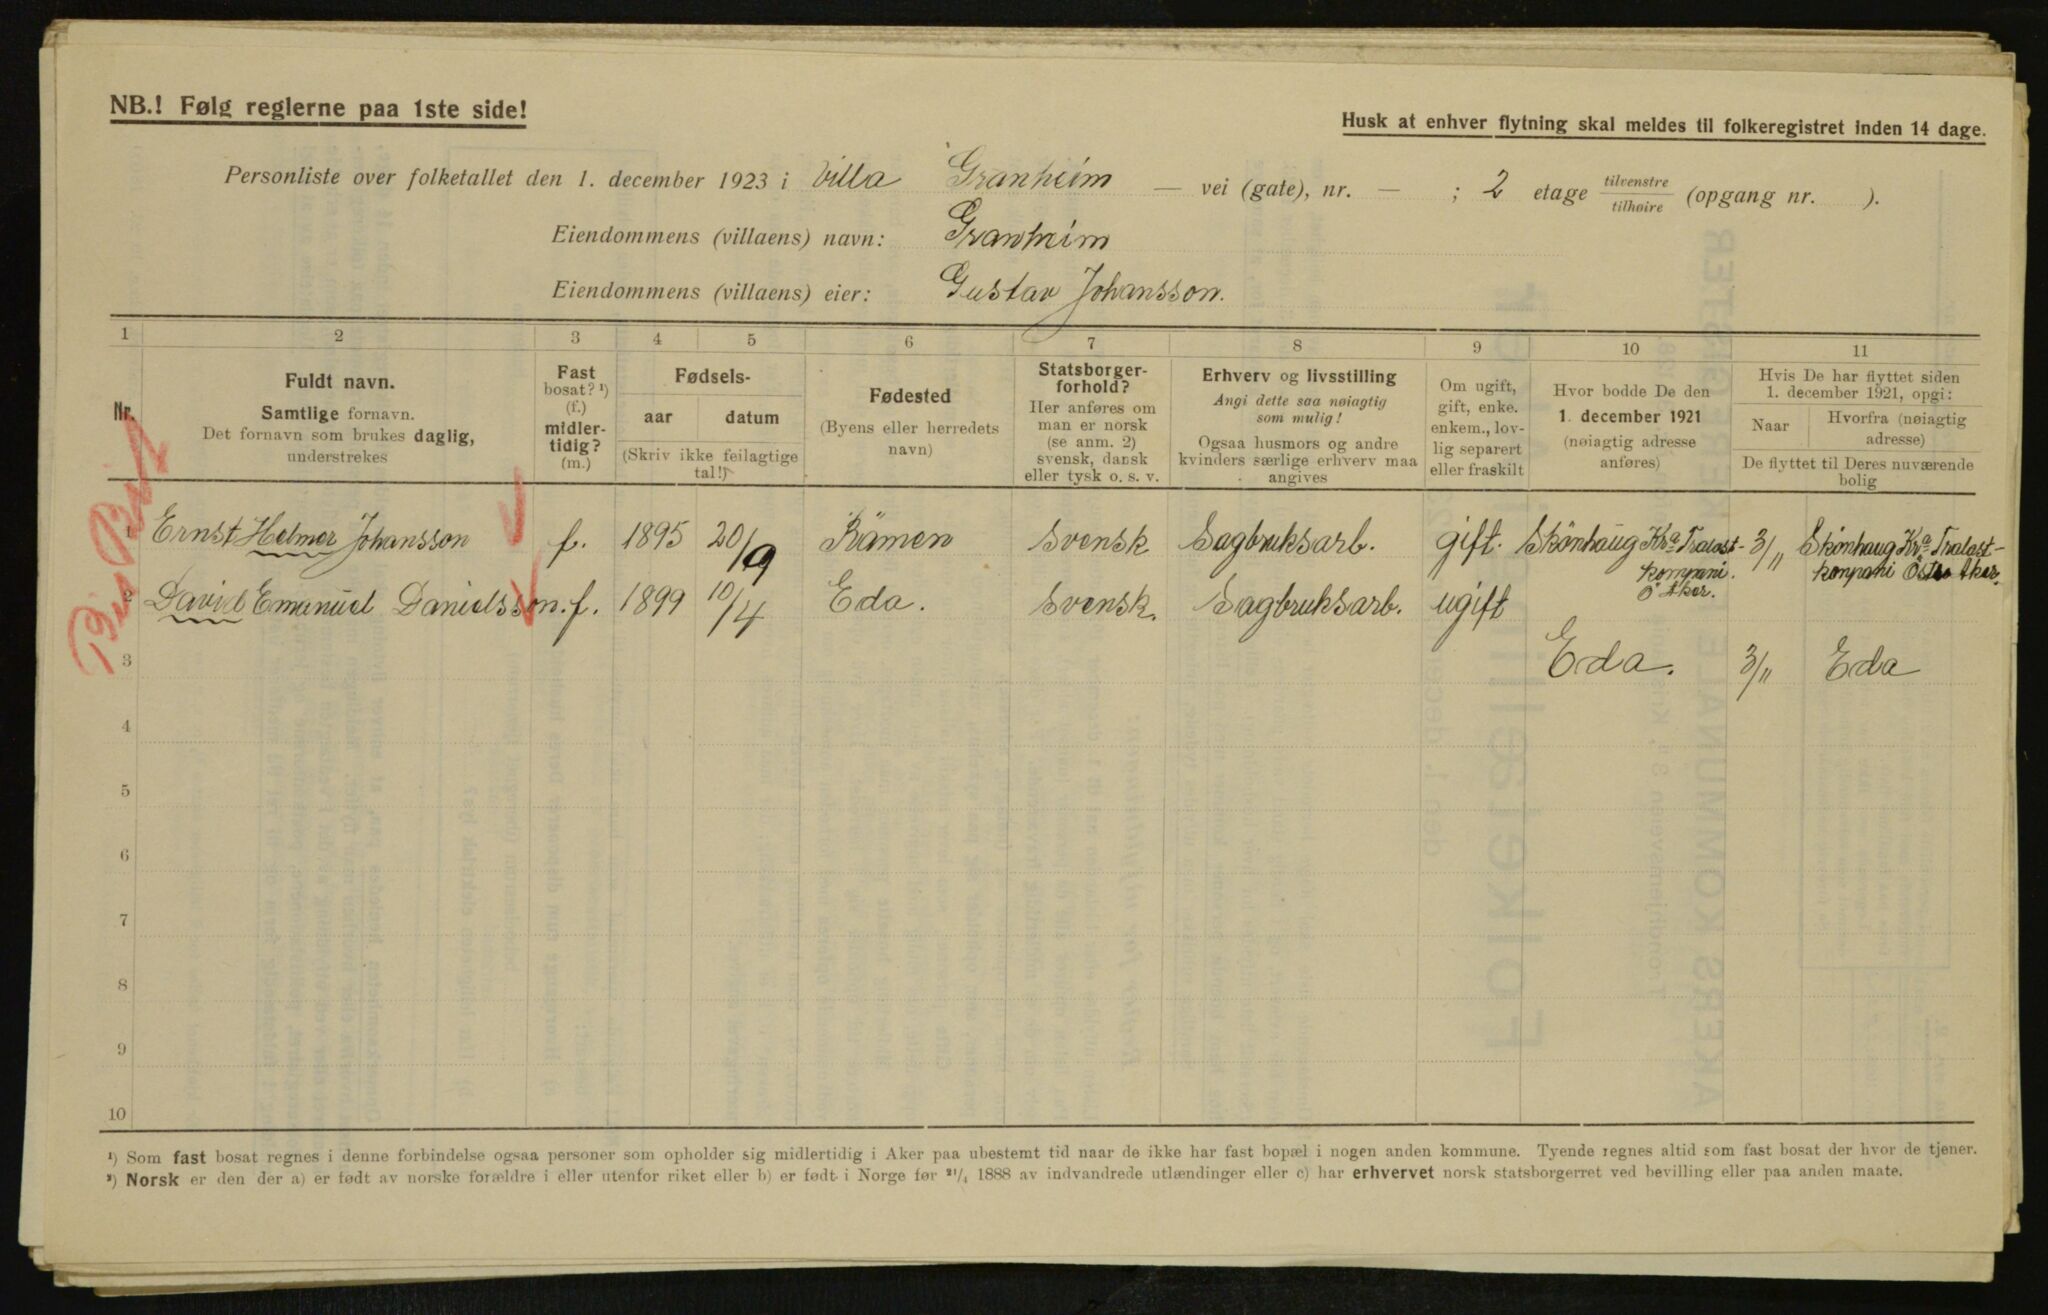 NB.! Følg reglerne paa 1ste side!
Husk at enhver flytning skal meldes til folkeregistret inden 14 dage.
Personliste over folketallet den 1. december 1923 i Villa Granheim — vei (gate), nr. — ; 2 etage tilvenstre/tilhøire (opgang nr. ).
Eiendommens (villaens) navn: Granheim
Eiendommens (villaens) eier: Gustav Johansson.
1 2 3 4 5 6 7 8 9 10 11
Nr.
Fuldt navn.
Samtlige fornavn.
Det fornavn som brukes daglig,
understrekes
Fast
bosat? ¹)
(f.)
midler-
tidig?
(m.)
Fødsels-
aar datum
(Skriv ikke feilagtige
tal!)
Fødested
(Byens eller herredets
navn)
Statsborger-
forhold?
Her anføres om
man er norsk
(se anm. 2)
svensk, dansk
eller tysk o. s. v.
Erhverv og livsstilling
Angi dette saa nøiagtig
som mulig!
Ogsaa husmors og andre
kvinders særlige erhverv maa
angives
Om ugift,
gift, enke.
enkem., lov-
lig separert
eller fraskilt
Hvor bodde De den
1. december 1921
(nøiagtig adresse
anføres)
Hvis De har flyttet siden
1. december 1921, opgi:
Naar
Hvorfra (nøiagtig
adresse)
De flyttet til Deres nuværende
bolig
1 Ernst Helmer Johansson f. 1895 20/9 Rämen Svensk Sagbruksarb. gift. Skönhaug Kra Tralast- 3/11 Skönhaug Kra Tralast-
kompani. kompani Östre Aker.
Ö Aker.
2 David Emanuel Danielsson. f. 1899 10/4 Eda. Svensk. Sagbruksarb. ugift
3 Eda. 3/11 Eda
4
5
6
7
8
9
10
¹) Som fast bosat regnes i denne forbindelse ogsaa personer som opholder sig midlertidig i Aker paa ubestemt tid naar de ikke har fast bopæl i nogen anden kommune. Tyende regnes altid som fast bosat der hvor de tjener.
²) Norsk er den der a) er født av norske forældre i eller utenfor riket eller b) er født i Norge før 21/4 1888 av indvandrede utlændinger eller c) har erhvervet norsk statsborgerret ved bevilling eller paa anden maate.